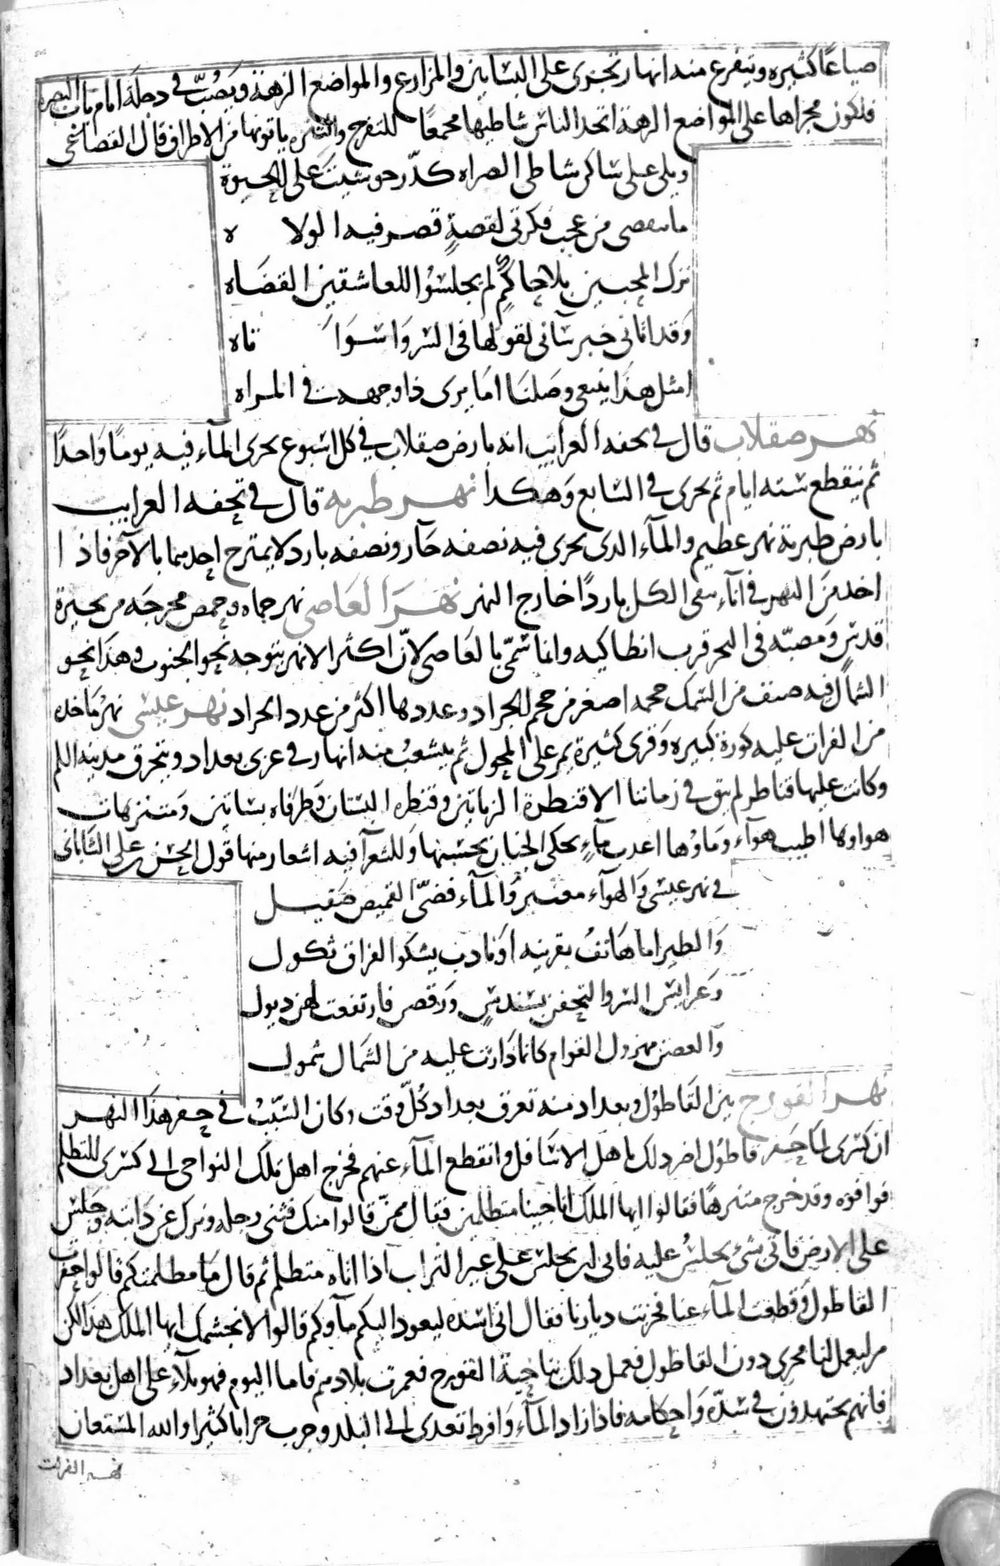 ضياعا كثيره ويتفرع منه انهار تجرى على البساتين والمزارع والمواضع النزهة ويصب فى دجلة امام باب البصره
فلكون مجراها على المواضع النزهة اتخذ الناس شاطيها مجمعا للتفرج والتنزه ياتونها من الاطراف قال القضاعى
ويلى على ساكن شاطى الصراه كدر حوشيت على الحيوة
ما تنقضى من عجب فكرتى لقصة قصر فيها الولا ه
ترك المحبين بلا حاكم لم يجلسوا للعاشقين القضاه
وقد اتانى خبر سآنى لقولها فى السر واسوا تاه
امثل هذا يبتغى وصلنا اما يرى ذا وجهه فى المراه
نهر صقلاب قال فى تحفه الغرايب انه بارض صقلاب فى كل اسبوع يجرى المآء فيه يوما واحدا
ثم ينقطع سته ايام ثم يجرى فى السابع وهكذا نهر طبريه قال فى تحفه الغرايب
بارض طبرية نهر عظيم والمآء الذى يجرى فيه نصفه حار ونصفه بارد لا يمتزج احدهما بالآخر فاذ ا
اخذ من النهر فى انآء يبقى الكل باردا خارج النهر نهر العاصى نهر حماه وحمص مخرجه من بحيرة
قدس ومصبه فى البحر قرب انطاكيه وانما سمى بالعاصى لان اكثر الانهر يتوجه نحو الجنوب وهذا نحو
الشمال فيه صنف من السمك حجمه اصغر من حجم الجراد وعددها اكثر من عدد الجراد نهر عيسى نهر ماخذه
من الفرات عليه كورة كبيره وقرى كثيرة يمر على المحول ثم يتشعب منه انهار فى غربى بغداد ويخترق مدينه السلم
وكانت عليها قناطر لم يبق فى زماننا الا قنطرة الزياتين وقنطره البستان وطرفاه بساتين ومتنزهات
هواوها اطيب هوآء وماوها اعذب مآء يحكى الجنان بحسنها وللشعرآ فيه اشعار منها قول الحسن بن على الشاتانى
فى نهر عيسى والهوآء معنبر والمآء فضى القميص صقيل
والطير اما هاتف بقرينه او نادب يشكوا الفراق ثكول
وعرايس السرو التحفن بسندس ورقصن فارتفعت لهن ديول
والغصن مهزول القوام كانما دارت عليه من الشمال شمول
نهر القورج بين القاطول وبغداد منه تغرق بغداد كل وقت وكان السبب فى حفر هذا النهر
ان كسرى لما حفر قاطول اضر ذلك باهل الاسافل وانقطع المآء عنهم فخرج اهل تلك النواحى الى كسرى للتظلم
فوافوه وقد خرج متنزها فقالوا ايها الملك انا جينا متظلمين فقال ممن قالوا منك فثنى رجله ونزل عن دابته وجلس
على الارض فاتى بشئ يجلس عليه فابى ان يجلس على غير التراب اذا اتاه متظلم ثم قال ما مظلمتكم قالوا حفرت
القاطول وقطعت المآء عنا فخربت ديارنا فقال انى اسده ليعود اليكم مآوكم قالوا لا نجشمك ايها الملك هذا لكن
مر ليعمل لنا مجرى دون القاطول فعمل ذلك بناحية القورج فعمرت بلادهم فاما اليوم فهو بلآء على اهل بغداد
فانهم يجتهدون فى سده واحكامه فاذا زاد المآء وافرط تعدى الى البلد وخرب خرابا كثيرا والله المستعان
نهر الفرات